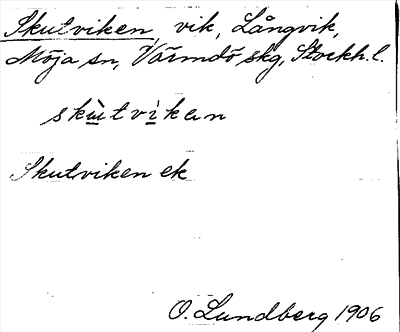 Skutviken, vik, Långvik,
Möja sn, Värmdö skg, Stockh. l.
skùtvìkan
Skutviken ek
O. Lundberg 1906